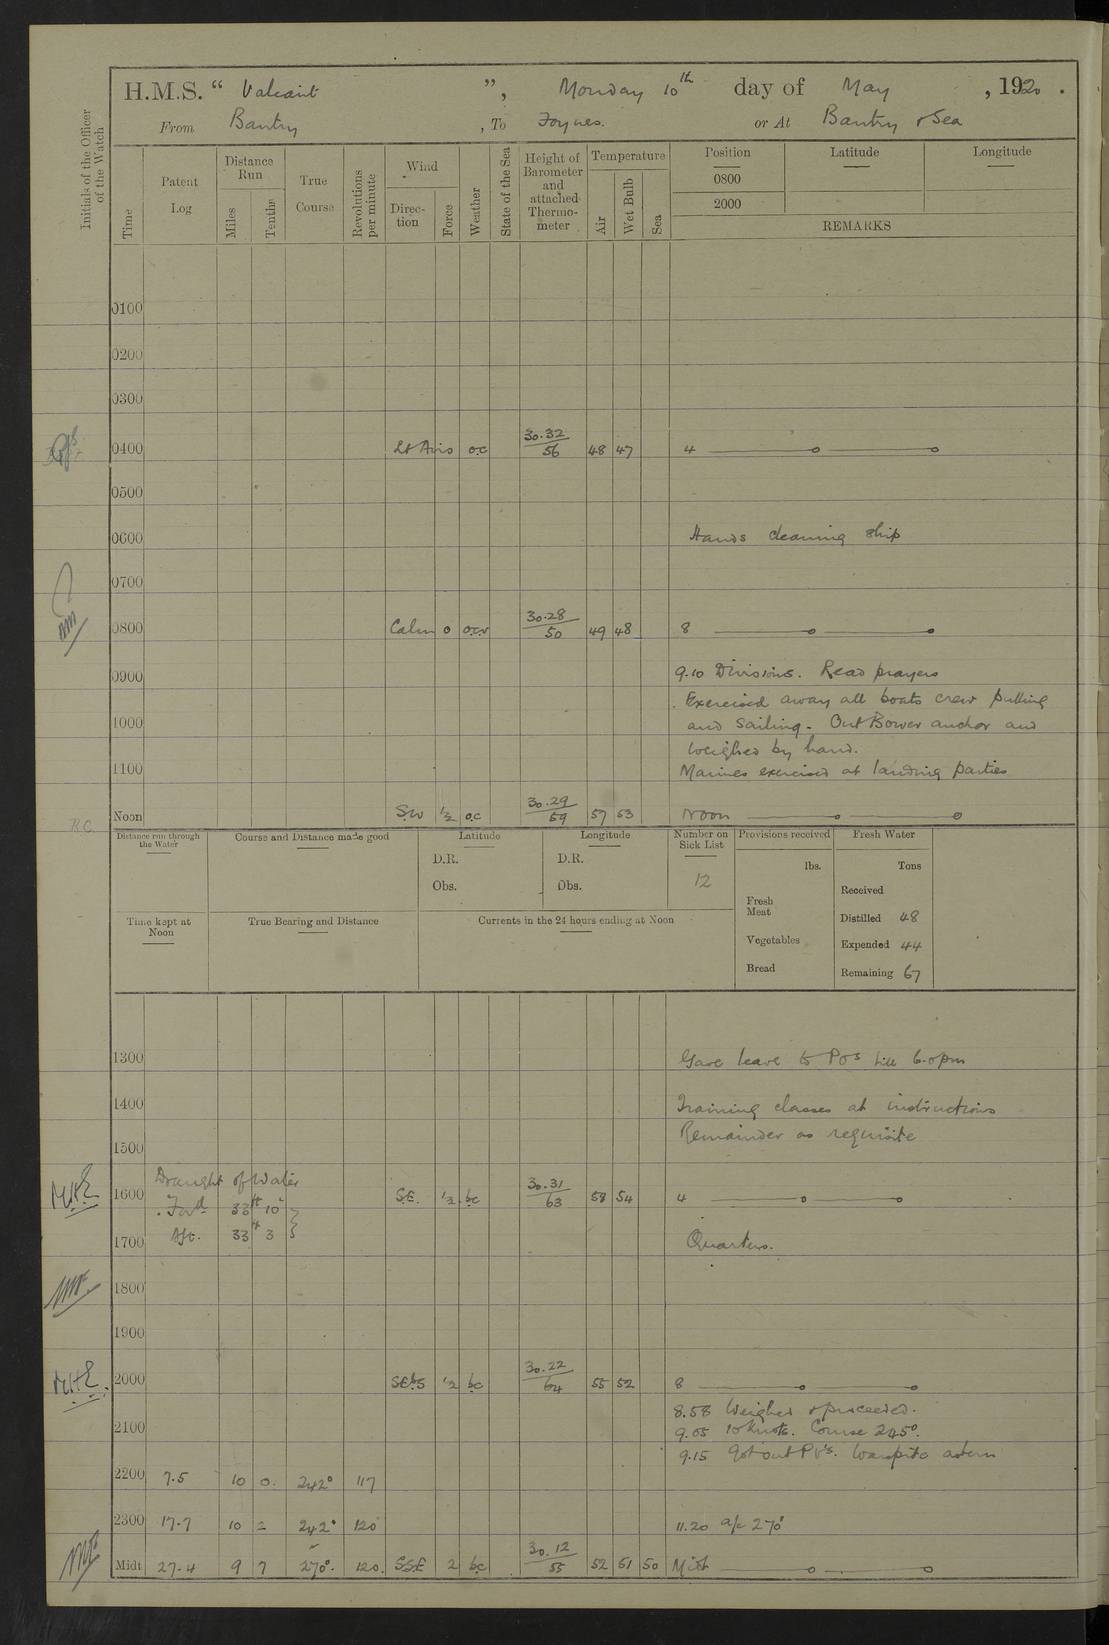 H.M.S. “ Valeant ”, Monday 10th day of May , 1920 .
From Bantry , To Foynes. or At Bantry & Sea
Initials of the Officer of the Watch
Time
Patent Log
Distance Run
Miles
Tenths
True Course
Revolutions per minute
Wind
Direction
Force
Weather
State of the Sea
Height of Barometer and attached Thermometer
Temperature
Air
Wet Bulb
Sea
Position
0800
2000
Latitude
Longitude
REMARKS
0100
0200
0300
0400 Lt Airs o.c 30.32/56 48 47 4
0500
0600 Hands cleaning ship
0700
0800 Calm 0 o.c.v 30.28/50 49 48 8
0900 9.10 Divisions. Read prayers
Exercised away all boats crew pulling
1000 and sailing. Out Bower anchor and
weighed by hand.
1100 Marines exercised at landing parties
Noon SW ½ o.c 30.29/59 57 53 Noon
Distance run through the Water
Course and Distance made good
Latitude
D.R.
Obs.
Longitude
D.R.
Obs.
Number on Sick List
12
Provisions received
lbs.
Fresh Meat
Vegetables
Bread
Fresh Water
Tons
Received
Distilled 48
Expended 44
Remaining 67
Time kept at Noon
True Bearing and Distance
Currents in the 24 hours ending at Noon
1300 Gave leave to POs till 6.0pm
1400 Training classes at instructions
Remainder as requisite
1500
Draught of Water
1600 S.E. ½ bc 30.31/63 58 54 4
Ford 33ft 10"
Aft. 33ft 3
1700 Quarters.
1800
1900
2000 SEbS ½ bc 30.22/64 55 52 8
8.58 Weighed & proceeded.
2100 9.05 10 Knots. Course 245°.
9.15 Got out PVs. Warspite astern
2200 7.5 10 0. 242° 117
2300 17.7 10 2 242° 120 11.20 a/c 270°
Midt 27.4 9 7 270°. 120. SSE 2 bc 30.12/55 52 51 50 Midt